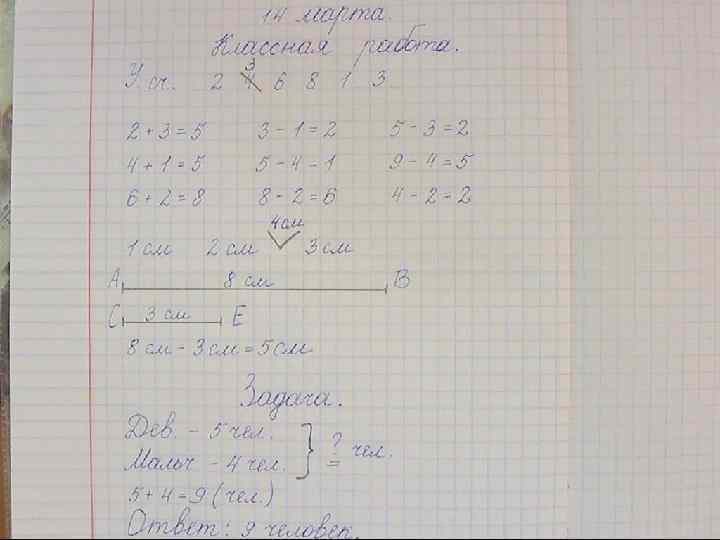 14 марта.
Классная работа.
3
У. сч. 2 4 6 8 1 3
2 + 3 = 5 3 - 1 = 2 5 - 3 = 2
4 + 1 = 5 5 - 4 - 1 9 - 4 = 5
6 + 2 = 8 8 - 2 = 6 4 - 2 = 2
4 см
1 см 2 см √ 3 см
А 8 см В
С 3 см Е
8 см - 3 см = 5 см
Задача.
Дев. - 5 чел. } ? чел.
Мальч - 4 чел.
5 + 4 = 9 (чел.)
Ответ: 9 человек.